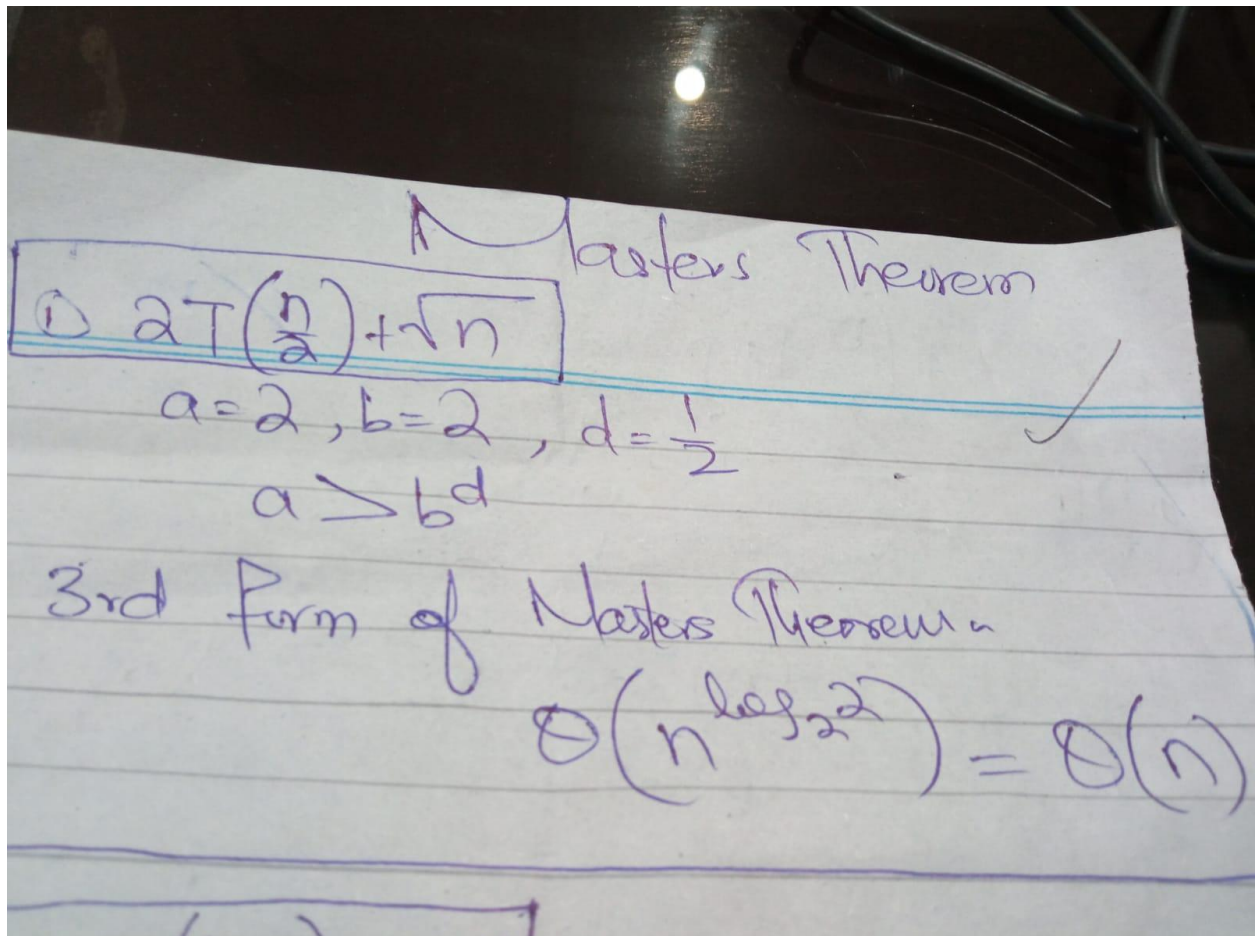 Masters Theorem
① 2T(n/2)+√n
a=2, b=2, d=1/2
a>b^d
3rd Form of Masters Theorem.
Θ(n^(log₂2)) = Θ(n)